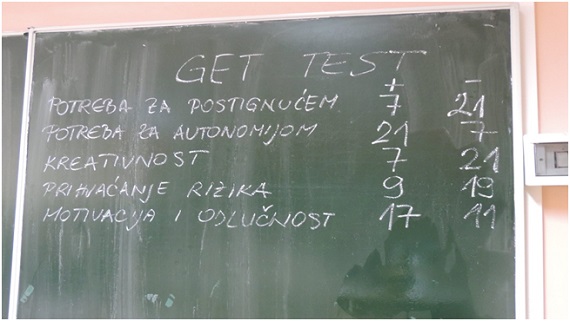 GET TEST
+ -
POTREBA ZA POSTIGNUĆEM 7 21
POTREBA ZA AUTONOMIJOM 21 7
KREATIVNOST 7 21
PRIHVAĆANJE RIZIKA 9 19
MOTIVACIJA I ODLUČNOST 17 11